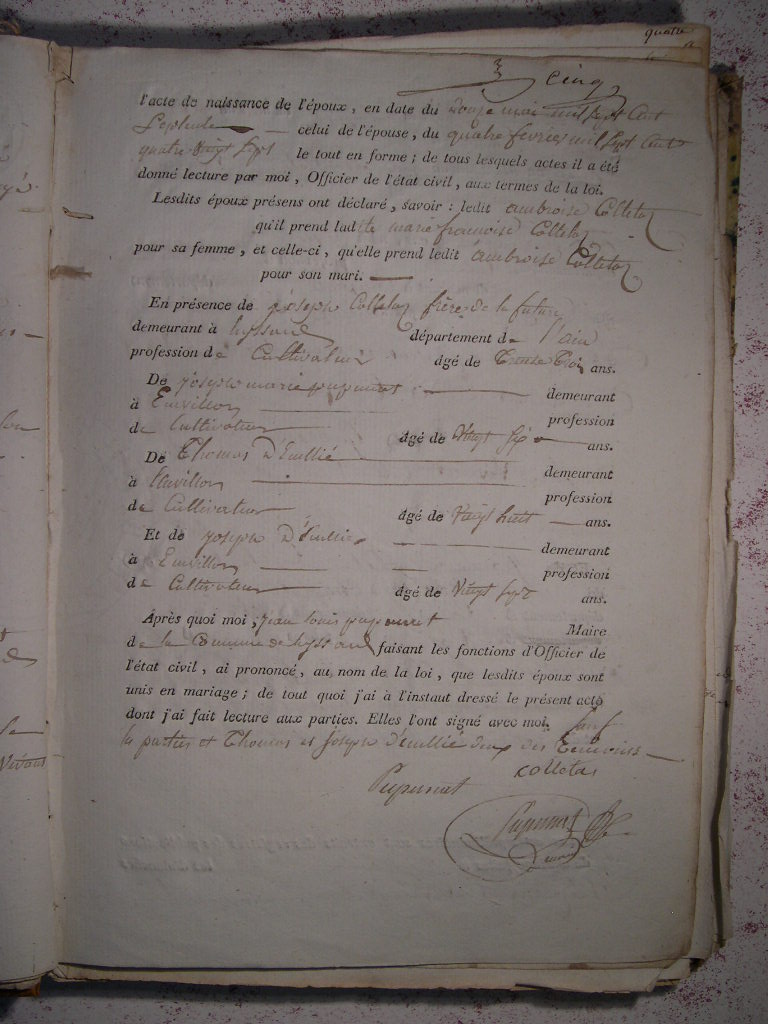 quatre
cinq
l'acte de naissance de l'époux, en date du douze mai mil sept cent
celui de l'épouse, du quatre fevrier mil sept cent
quatre vingt sept le tout en forme; de tous lesquels actes il a été
donné lecture par moi, Officier de l'état civil, aux termes de la loi.
Lesdits époux présens ont déclaré, savoir: ledit ambroise Colletaz
qu'il prend ladite marie francoise Colletaz
pour sa femme, et celle-ci, qu'elle prend ledit ambroise Colletaz
pour son mari.
En présence de joseph Colletaz frère de la future
demeurant à département de l'ain
profession de Cultivateur âgé de Trente Trois ans.
De joseph marie pupunat demeurant
à Emvillon profession
de Cultivateur âgé de Vingt six ans.
De Thomas D'Emillié demeurant
à Emvillon profession
de Cultivateur âgé de Vingt huit ans.
Et de joseph D'Emillié demeurant
à Emvillon profession
de Cultivateur âgé de Vingt sept ans.
Après quoi moi, jean louis pupunat Maire
de la Commune de faisant les fonctions d'Officier de
l'état civil, ai prononcé, au nom de la loi, que lesdits époux sont
unis en mariage; de tout quoi j'ai à l'instant dressé le présent acte
dont j'ai fait lecture aux parties. Elles l'ont signé avec moi. sauf
la parties et Thomas et Joseph D'emillié deux des Temoins
colletas
Pupunat
Pupunat